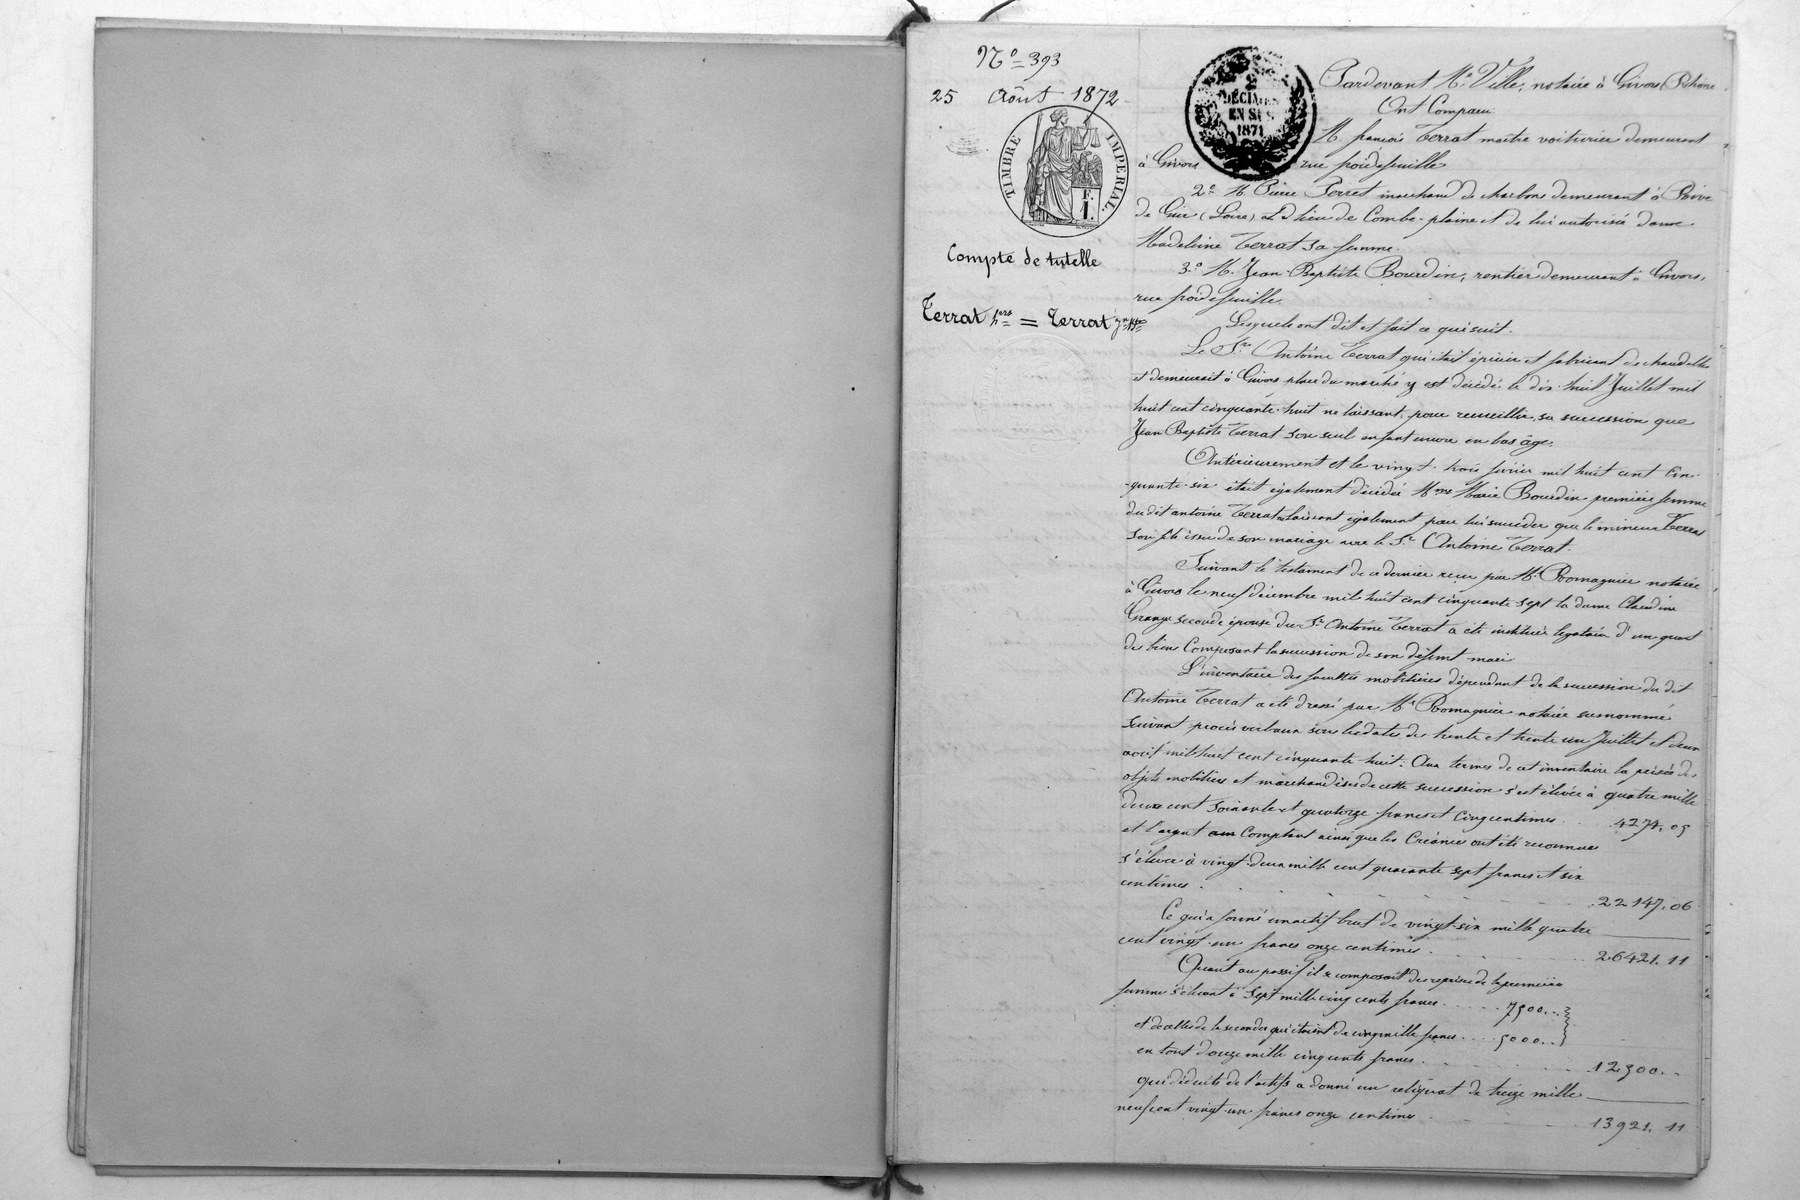 N° 393
25 Août 1872
TIMBRE IMPERIAL.
F.
1.
Compte de tutelle
Terrat hers = Terrat Jn Bte
2
DÉCIMES
EN SUS
1871
Pardevant Me Ville, notaire à Givors (Rhône
Ont Comparu
M. françois Terrat maître voiturier demeurant
à Givors rue froidefeuille
2° M. Pierre Perret marchand de charbons demeurant à Rive
de Gier (Loire) au lieu de Combe-plaine et de lui autorisée dame
Madeleine Terrat sa femme.
3° M. Jean Baptiste Bourdin, rentier demeurant à Givors,
rue froidefeuille.
Lesquels ont dit et fait ce qui suit.
Le Sr Antoine Terrat qui était épicier et fabricant de chandelles
et demeurait à Givors place du marché y est décédé le dix-huit Juillet mil
huit cent cinquante-huit ne laissant pour recueillir sa succession que
Jean Baptiste Terrat son seul enfant encore en bas âge.
Antérieurement et le vingt-trois février mil huit cent cin-
-quante-six était également décédée Mme Marie Bourdin première femme
du dit antoine Terrat laissant également pour lui succéder que le mineur Terrat
son fils issu de son mariage avec le Sr Antoine Terrat.
Suivant le testament de ce dernier reçu par Me Romagnier notaire
à Givors le neuf décembre mil huit cent cinquante sept la dame Claudine
Grange seconde épouse du Sr Antoine Terrat a été instituée légataire d'un quart
des biens Composant la succession de son défunt mari
L'inventaire des facultés mobilières dépendant de la succession du dit
Antoine Terrat a été dressé par Me Romagnier notaire susnommé
suivant procès verbaux sous les dates des trente et trente un Juillet et deux
août mil huit cent cinquante-huit. Aux termes de cet inventaire la prisée des
objets mobiliers et marchandises de cette succession s'est élevée à quatre mille
deux cent soixante et quatorze francs et cinq centimes . . . 4274.05
et l'argent Comptant ainsi que les Créances ont été reconnus
s'élever à vingt-deux mille cent quarante sept francs et six
centimes . . . 22147.06
Ce qui a formé un actif brut de vingt-six mille quatre
cent vingt-un francs onze centimes . . . 26421.11
Quant au passif il se composait des reprises de la première
femme s'élevant à sept mille cinq cents francs . . . 7500..
et de celles de la seconde qui étaient de cinq mille francs . . . 5000..
en tout douze mille cinq cents francs . . . 12500..
qui déduits de l'actif a donné un reliquat de treize mille
neuf cent vingt-un francs onze centimes . . . 13921.11